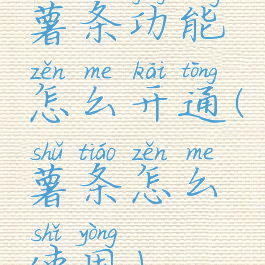 薯条功能
zěn me kāi tōng
怎么开通（
shǔ tiáo zěn me
薯条怎么
shǐ yòng
使用）